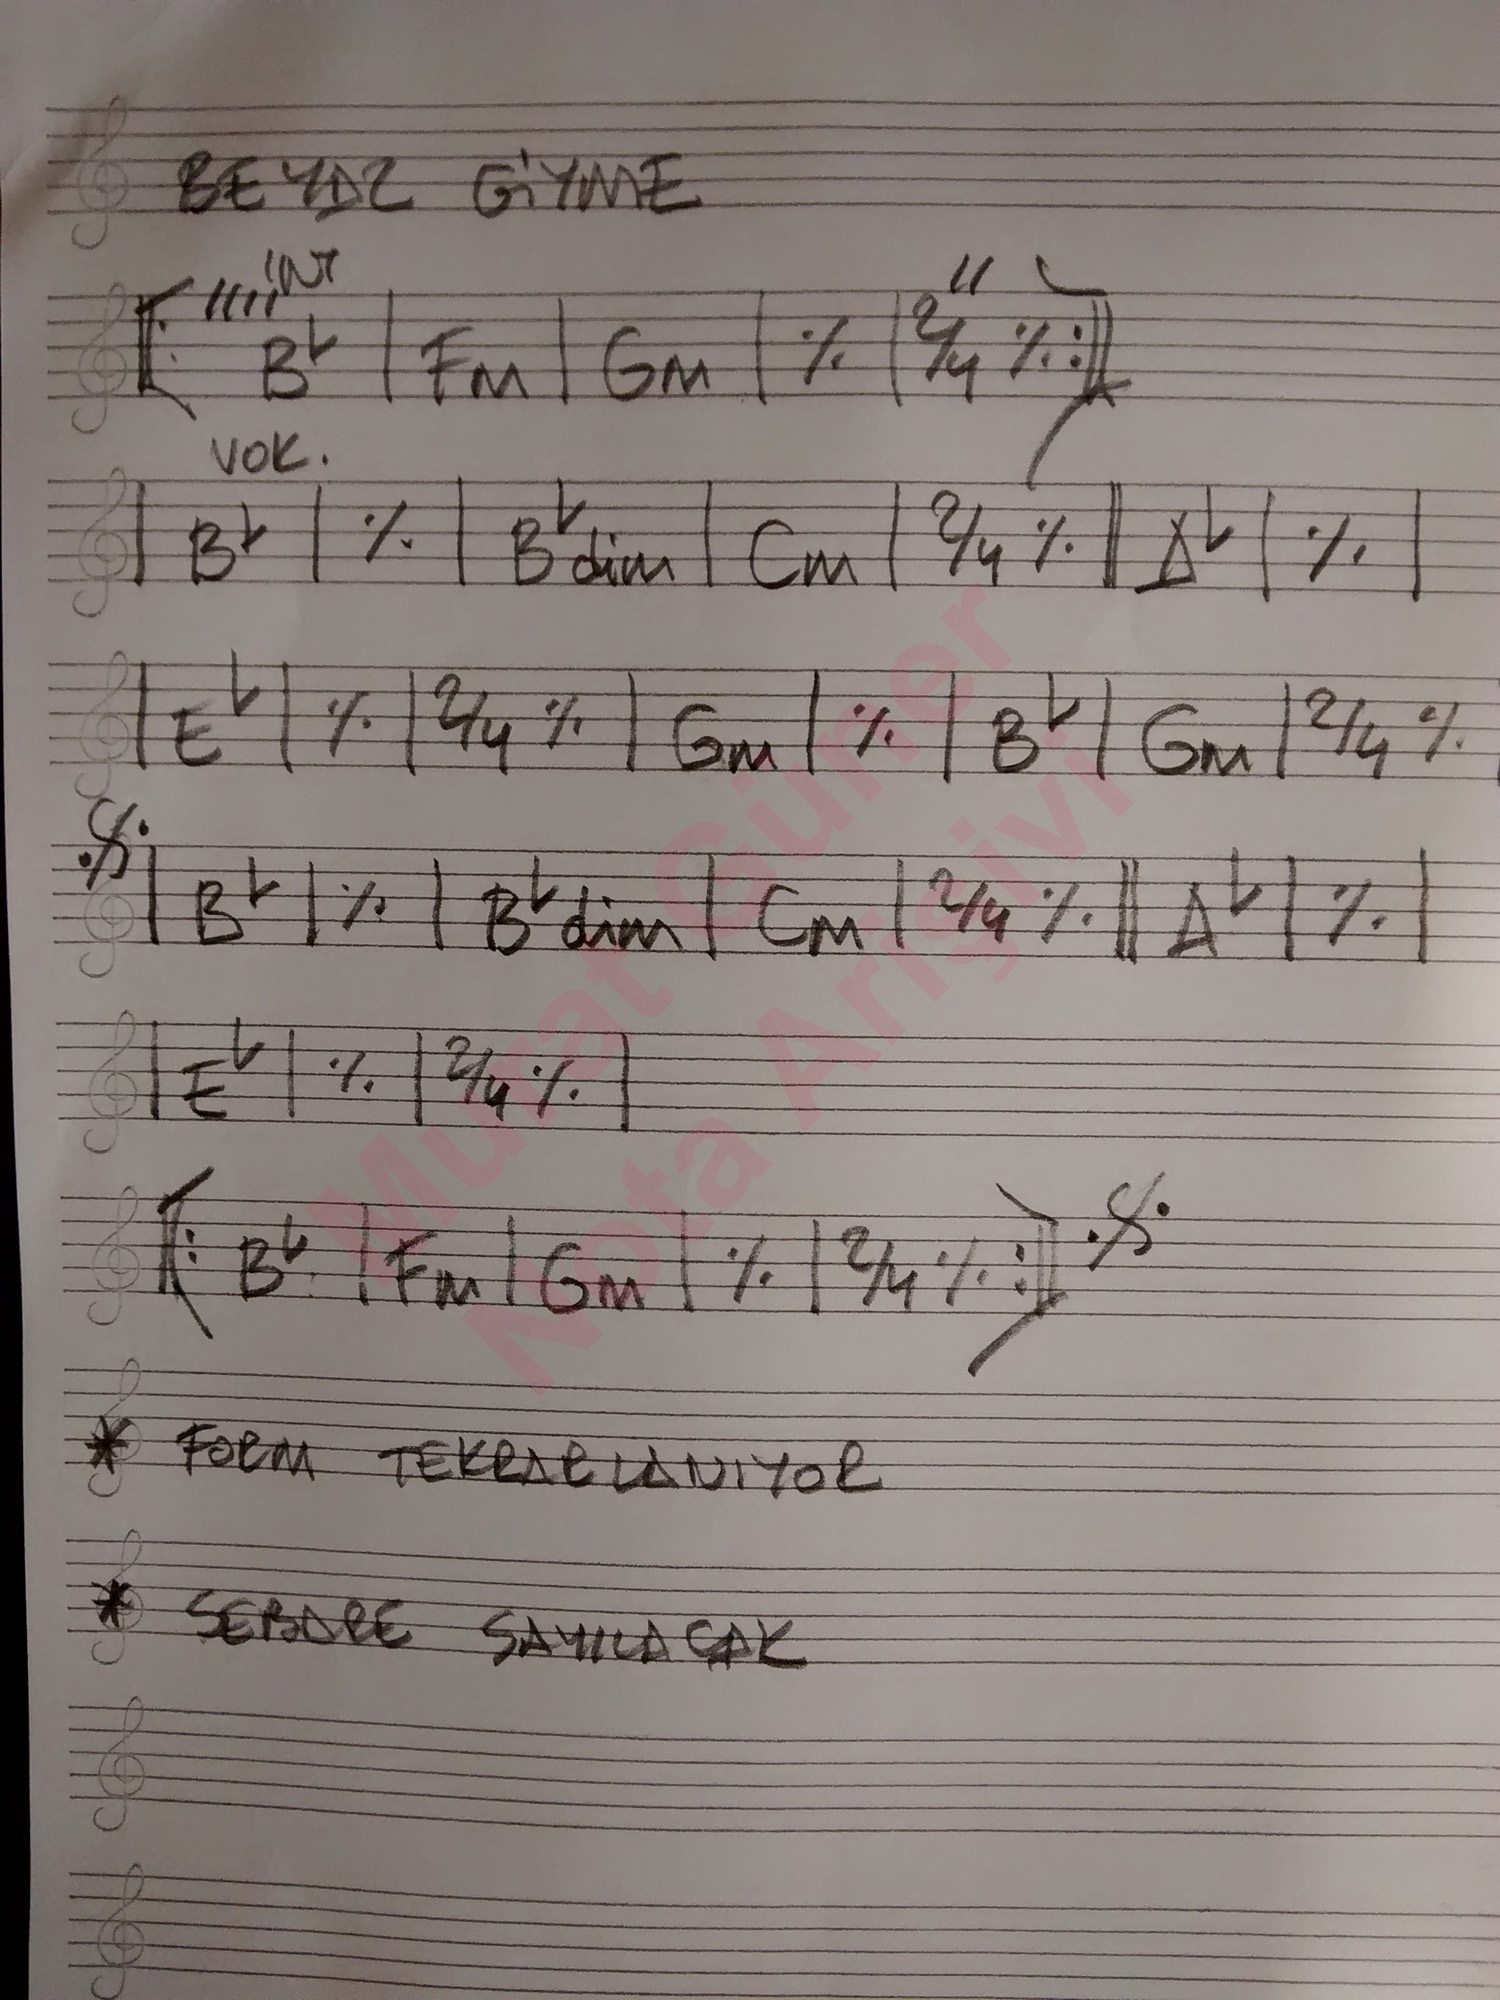 BEYAZ GİYME
//// İNT //
𝄆 B♭ | Fm | Gm | ٪ | 2/4 ٪ 𝄇
VOK.
| B♭ | ٪ | B♭dim | Cm | 2/4 ٪ || A♭ | ٪ |
| E♭ | ٪ | 2/4 ٪ | Gm | ٪ | B♭ | Gm | 2/4 ٪
𝄋 | B♭ | ٪ | B♭dim | Cm | 2/4 ٪ || A♭ | ٪ |
| E♭ | ٪ | 2/4 ٪ |
𝄆 B♭ | Fm | Gm | ٪ | 2/4 ٪ 𝄇 𝄋
* FORM TEKRARLANIYOR
* SEBARE SAYILACAK
Murat Güner
Nota Arişivi